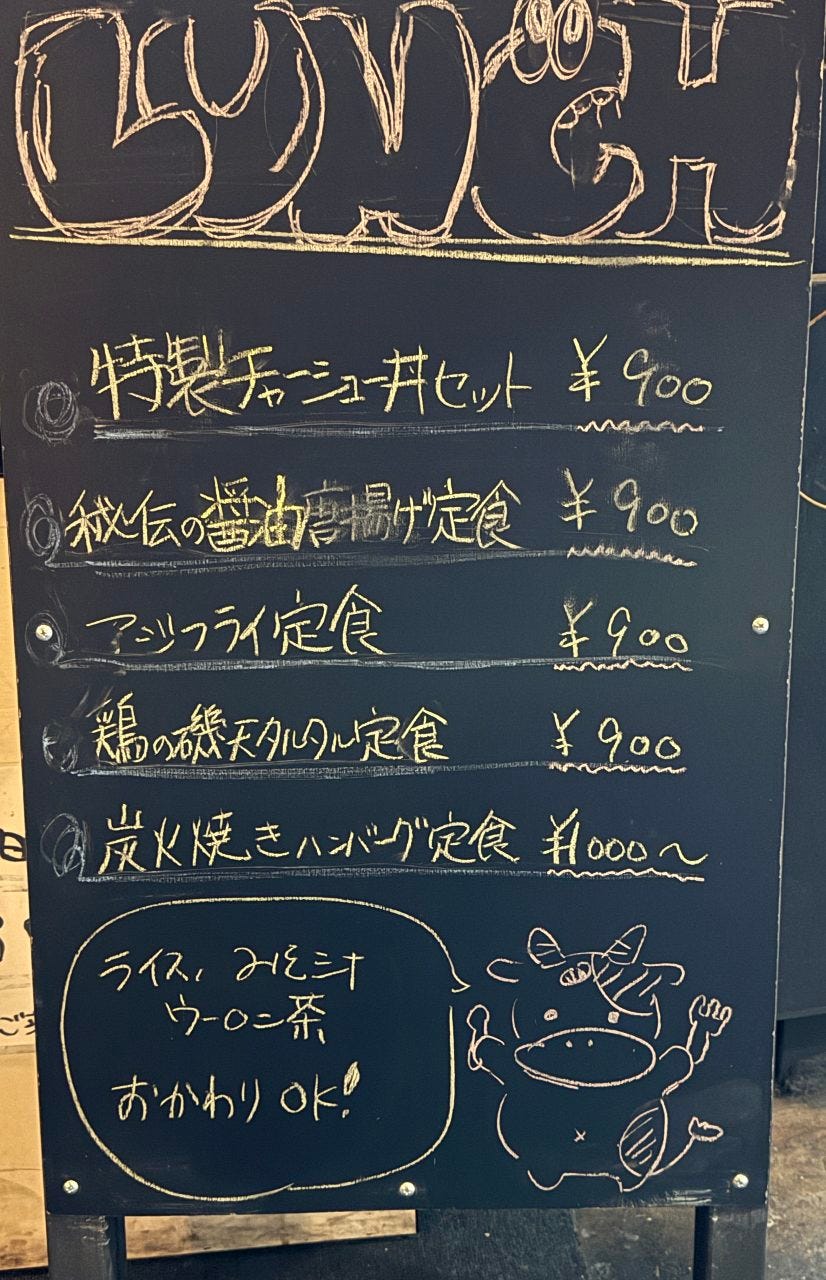 LUNCH
特製チャーシュー丼セット ¥900
秘伝の醤油唐揚げ定食 ¥900
アジフライ定食 ¥900
鶏の磯天タルタル定食 ¥900
炭火焼きハンバーグ定食 ¥1000～
ライス、みそ汁
ウーロン茶
おかわりOK!